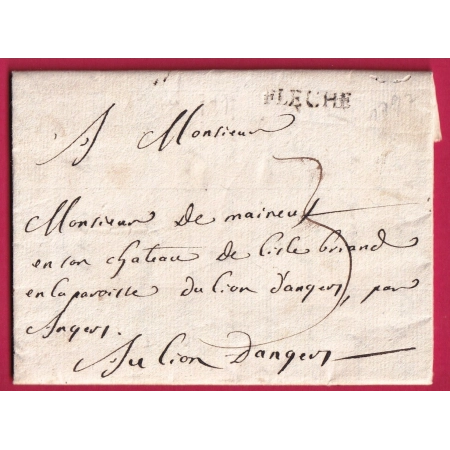 FLECHE
A Monsieur
3
Monsieur De maineuf
en son chateau de lisle briand
en la paroisse du lion d'angers, par
Angers.
Au lion D'angers